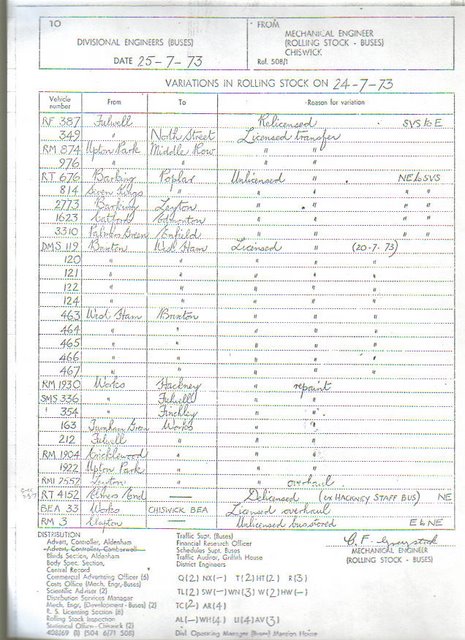 10
TO
DIVISIONAL ENGINEERS (BUSES)
DATE 25-7-73
FROM
MECHANICAL ENGINEER
(ROLLING STOCK - BUSES)
CHISWICK
Ref. 508/1
VARIATIONS IN ROLLING STOCK ON 24-7-73
Vehicle number From To Reason for variation
RF 387 Fulwell Relicensed SVS to E
349 " North Street Licensed transfer
RM 874 Upton Park Middle Row " "
976 " " " "
RT 676 Barking Poplar Unlicensed " NE to SVS
814 Seven Kings " " " " "
2773 Barking Leyton " " " "
1623 Catford Edmonton " " " "
3310 Palmers Green Enfield " " " "
DMS 119 Brixton West Ham Licensed " (20-7-73)
120 " " " " "
121 " " " " "
122 " " " " "
124 " " " " "
463 West Ham Brixton " " "
464 " " " " "
465 " " " " "
466 " " " " "
467 " " " " "
RM 1930 Works Hackney " repaint
SMS 336 " Fulwell " "
354 " Finchley " "
163 Turnham Green Works " "
212 Fulwell " " "
RM 1904 Cricklewood " " "
1922 Upton Park " " "
RM 2557 Leyton " " overhaul
RT 4152 Athens Road — Delicensed (ex HACKNEY STAFF BUS) NE
BEA 33 Works CHISWICK BEA Licensed overhaul
RM 3 Clapton — Unlicensed bus stored E to NE
DISTRIBUTION
Advert. Controller, Aldenham
Advert. Controller, Camberwell
Blinds Section, Aldenham
Body Spec. Section,
Central Record
Commercial Advertising Officer (5)
Costs Office (Mech. Engr. Buses)
Scientific Adviser (2)
Distribution Services Manager
Mech. Engr. (Development - Buses) (2)
R. S. Licensing Section (6)
Rolling Stock Inspection
Statistical Office - Chiswick (2)
Traffic Supt. (Buses)
Financial Research Officer
Schedules Supt. Buses
Traffic Auditor, Griffith House
District Engineers
Q(2) NX(-) T(2) HT(2) R(3)
TL(2) SW(-) WN(3) W(2) HW(-)
TC(2) AR(4)
AL(-) WH(4) U(4) AV(3)
MECHANICAL ENGINEER
(ROLLING STOCK - BUSES)